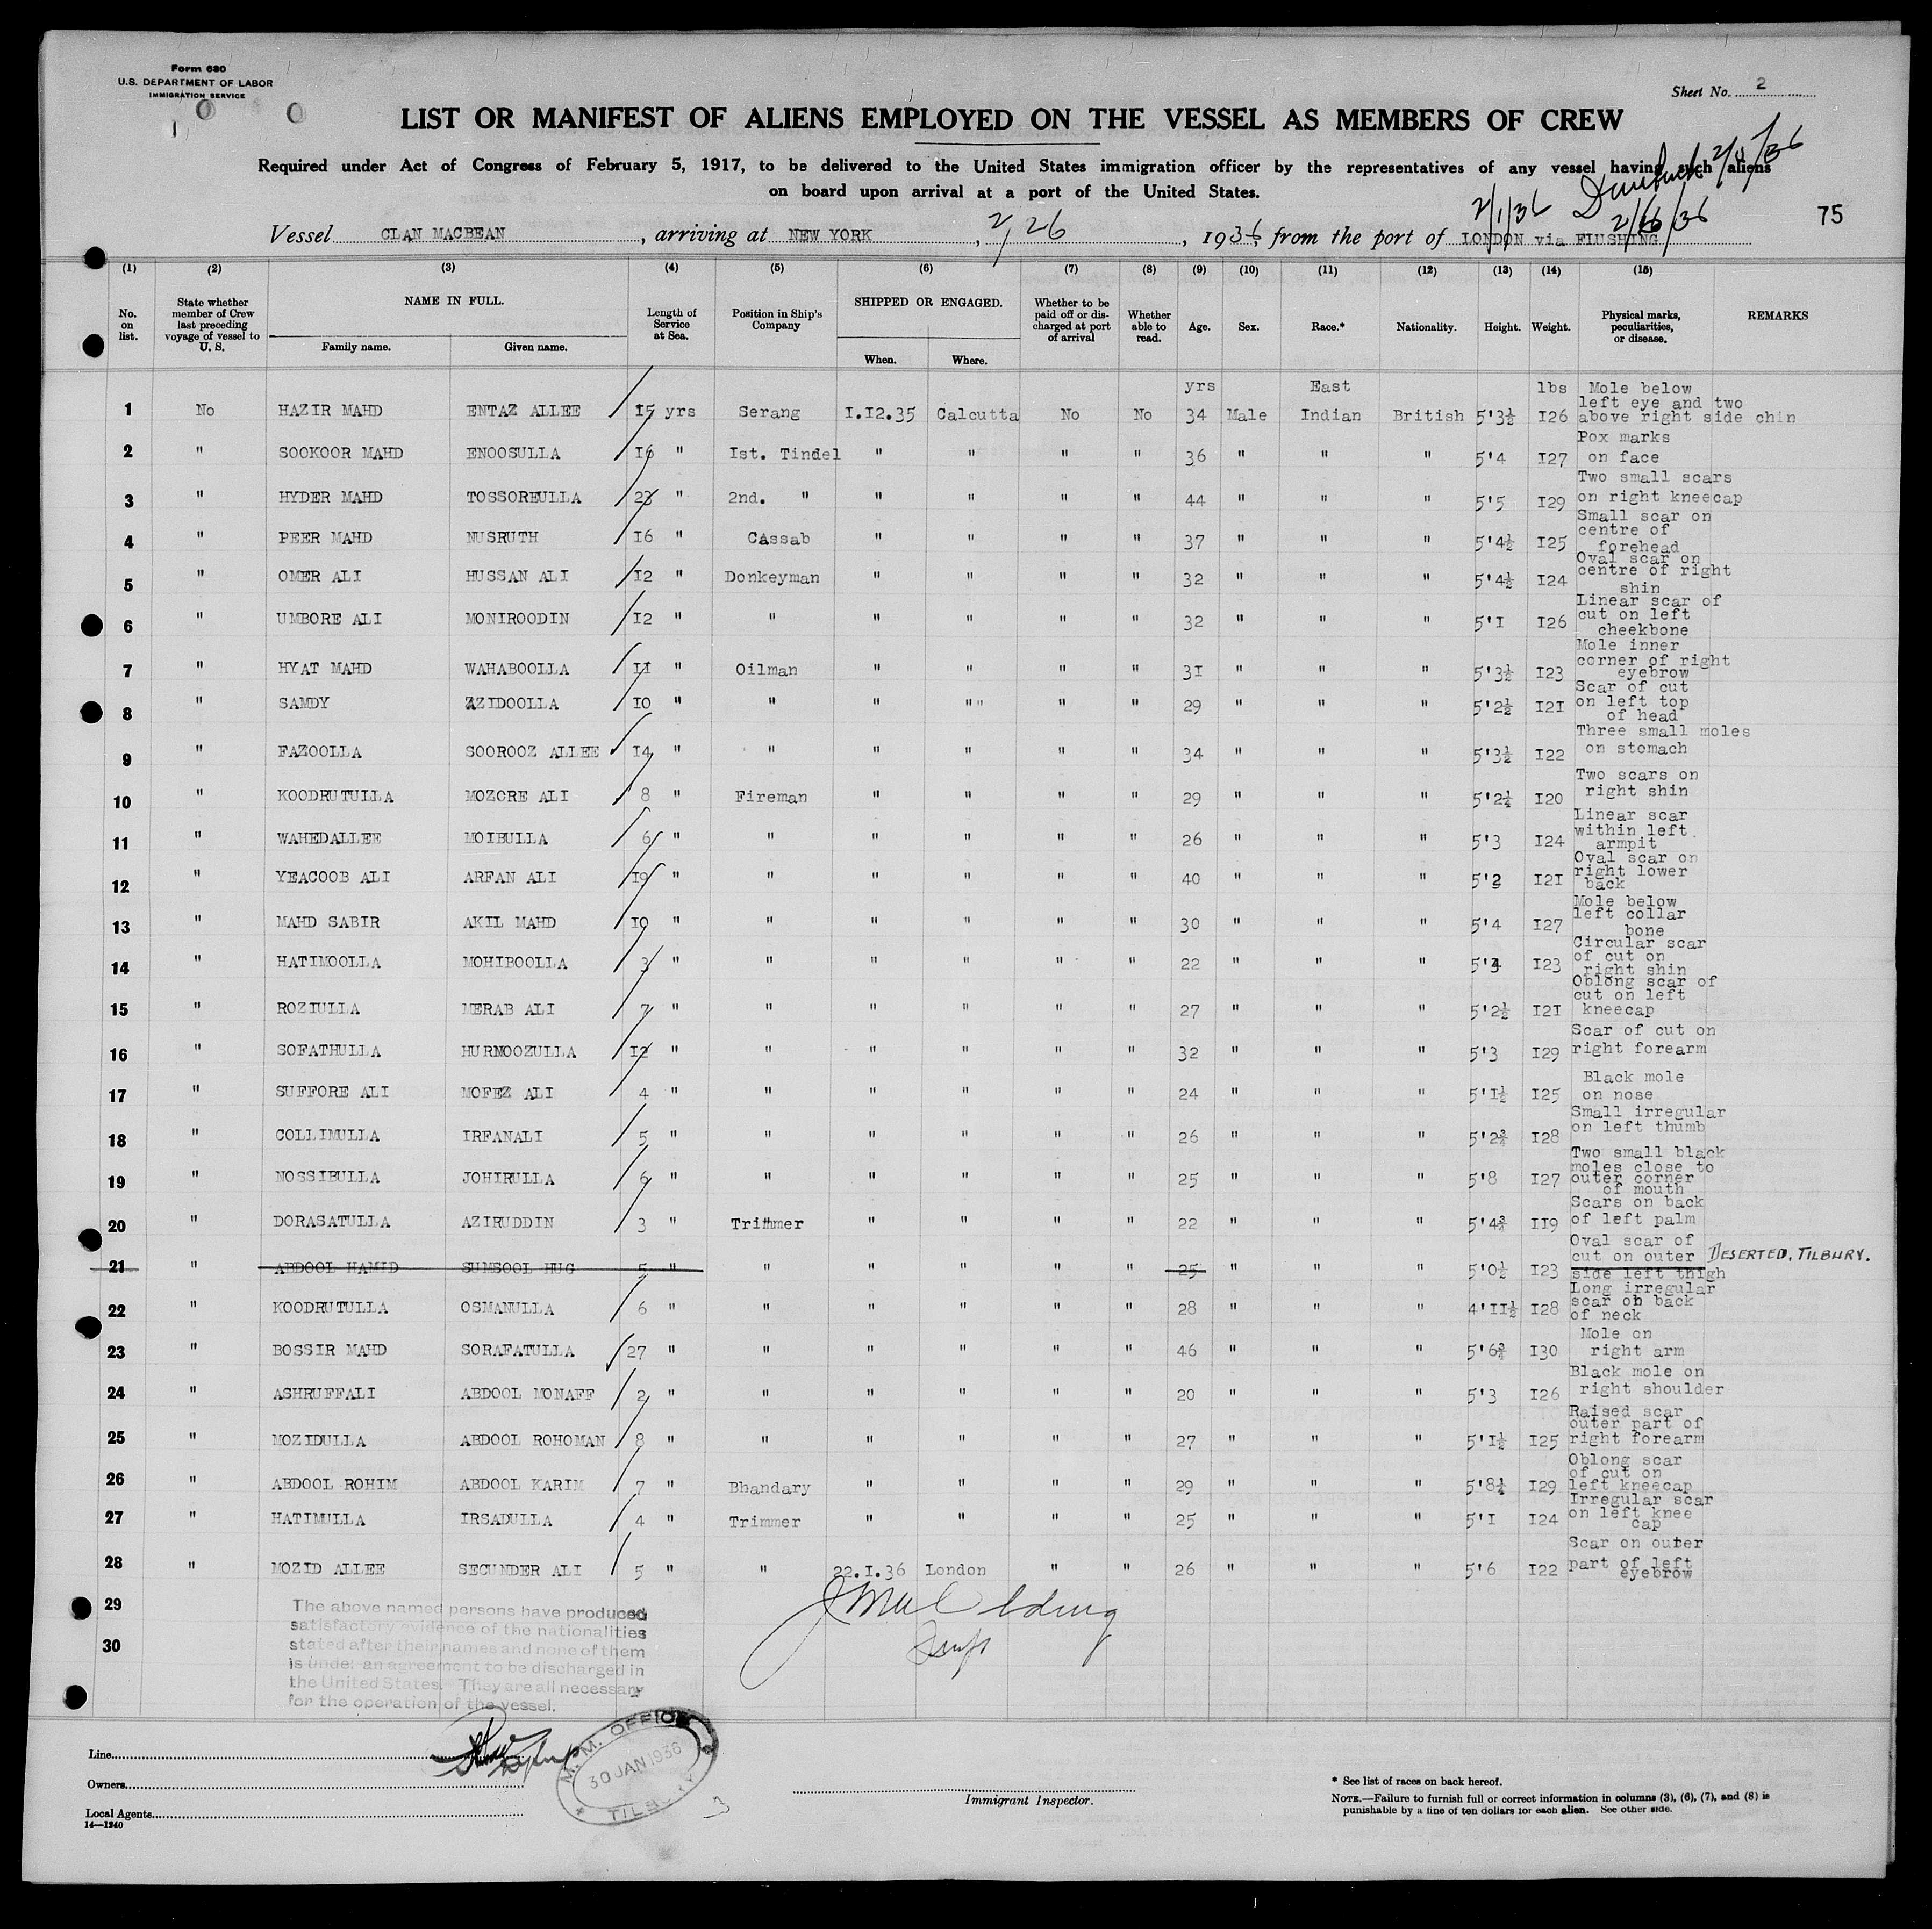 Form 680
U.S. DEPARTMENT OF LABOR
IMMIGRATION SERVICE
Sheet No. 2
LIST OR MANIFEST OF ALIENS EMPLOYED ON THE VESSEL AS MEMBERS OF CREW
Required under Act of Congress of February 5, 1917, to be delivered to the United States immigration officer by the representatives of any vessel having such aliens
on board upon arrival at a port of the United States.
2/1/36 2/16/36
75
Vessel CLAN MACBEAN, arriving at NEW YORK, 2/26, 1936, from the port of LONDON via FLUSHING
(1) (2) (3) (4) (5) (6) (7) (8) (9) (10) (11) (12) (13) (14) (15)
No. on list. State whether member of Crew last preceding voyage of vessel to U. S. NAME IN FULL. Family name. Given name. Length of Service at Sea. Position in Ship's Company SHIPPED OR ENGAGED. When. Where. Whether to be paid off or discharged at port of arrival Whether able to read. Age. Sex. Race.* Nationality. Height. Weight. Physical marks, peculiarities, or disease. REMARKS
yrs East lbs
1 No HAZIR MAHD ENTAZ ALLEE 15 yrs Serang 1.12.35 Calcutta No No 34 Male Indian British 5'3½ 126 Mole below left eye and two above right side chin
2 " SOOKOOR MAHD ENOOSULLA 16 " Ist. Tindel " " " " 36 " " " 5'4 127 Pox marks on face
3 " HYDER MAHD TOSSOREULLA 23 " 2nd. " " " " " 44 " " " 5'5 129 Two small scars on right kneecap
4 " PEER MAHD NUSRUTH 16 " Cassab " " " " 37 " " " 5'4½ 125 Small scar on centre of forehead
5 " OMER ALI HUSSAN ALI 12 " Donkeyman " " " " 32 " " " 5'4½ 124 Oval scar on centre of right shin
6 " UMBORE ALI MONIROODIN 12 " " " " " " 32 " " " 5'1 126 Linear scar of cut on left cheekbone
7 " HYAT MAHD WAHABOOLLA 11 " Oilman " " " " 31 " " " 5'3½ 123 Mole inner corner of right eyebrow
8 " SAMDY AZIDOOLLA 10 " " " " " " " 29 " " " 5'2½ 121 Scar of cut on left top of head
9 " FAZOOLLA SOOROOZ ALLEE 14 " " " " " " 34 " " " 5'3½ 122 Three small moles on stomach
10 " KOODRUTULLA MOZORE ALI 8 " Fireman " " " " 29 " " " 5'2¼ 120 Two scars on right shin
11 " WAHEDALLEE MOIBULLA 6 " " " " " " 26 " " " 5'3 124 Linear scar within left armpit
12 " YEACOOB ALI ARFAN ALI 19 " " " " " " 40 " " " 5'2 121 Oval scar on right lower back
13 " MAHD SABIR AKIL MAHD 10 " " " " " " 30 " " " 5'4 127 Mole below left collar bone
14 " HATIMOOLLA MOHIBOOLLA 3 " " " " " " 22 " " " 123 Circular scar of cut on right shin
15 " ROZIULLA MERAB ALI 7 " " " " " " 27 " " " 5'2½ 121 Oblong scar of cut on left kneecap
16 " SOFATHULLA HURMOOZULLA 12 " " " " " " 32 " " " 5'3 129 Scar of cut on right forearm
17 " SUFFORE ALI MOFEZ ALI 4 " " " " " " 24 " " " 5'1½ 125 Black mole on nose
18 " COLLIMULLA IRFANALI 5 " " " " " " 26 " " " 5'2¾ 128 Small irregular on left thumb
19 " NOSSIBULLA JOHIRULLA 6 " " " " " " 25 " " " 5'8 127 Two small black moles close to outer corner of mouth
20 " DORASATULLA AZIRUDDIN 3 " Trimmer " " " " 22 " " " 5'4¾ 119 Scars on back of left palm
21 " ABDOOL HAMID SUMSOOL HUG 5 " " " " " " 25 " " " 5'0½ 123 Oval scar of cut on outer side left thigh DESERTED, TILBURY.
22 " KOODRUTULLA OSMANULLA 6 " " " " " " 28 " " " 4'11½ 128 Long irregular scar on back of neck
23 " BOSSIR MAHD SORAFATULLA 27 " " " " " " 46 " " " 5'6¾ 130 Mole on right arm
24 " ASHRUFFALI ABDOOL MONAFF 2 " " " " " " 20 " " " 5'3 126 Black mole on right shoulder
25 " MOZIDULLA ABDOOL ROHOMAN 8 " " " " " " 27 " " " 5'1½ 125 Raised scar outer part of right forearm
26 " ABDOOL ROHIM ABDOOL KARIM 7 " Bhandary " " " " 29 " " " 5'8¼ 129 Oblong scar of cut on left kneecap
27 " HATIMULLA IRSADULLA 4 " Trimmer " " " " 25 " " " 5'1 124 Irregular scar on left knee cap
28 " MOZID ALLEE SECUNDER ALI 5 " " 22.1.36 London " " 26 " " " 5'6 122 Scar on outer part of left eyebrow
29
30
The above named persons have produced
satisfactory evidence of the nationalities
stated after their names and none of them
is under an agreement to be discharged in
the United States. They are all necessary
for the operation of the vessel.
Line
Owners
Local Agents
14—1240
M. M. OFFICE
30 JAN 1936
TILBURY
3
Immigrant Inspector.
* See list of races on back hereof.
NOTE.—Failure to furnish full or correct information in columns (3), (6), (7), and (8) is
punishable by a fine of ten dollars for each alien. See other side.